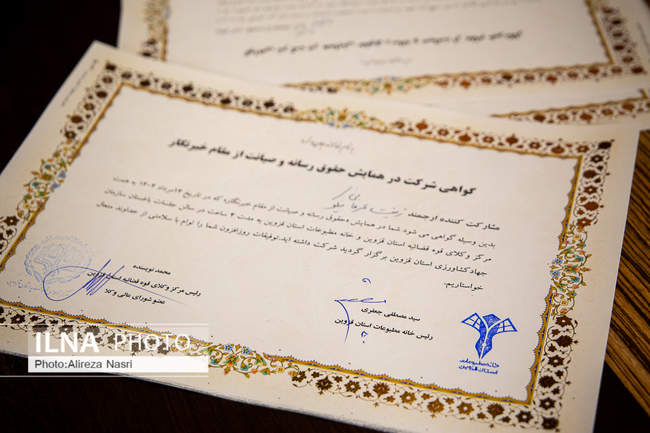 گواهی شرکت در همایش حقوق رسانه و صیانت از مقام خبرنگار
مشارکت کننده ارجمند
بدین وسیله گواهی می شود شما در همایش «حقوق رسانه و صیانت از مقام خبرنگار» که در تاریخ ۱۴۰۴ به همت
مرکز وکلای قوه قضائیه استان قزوین و خانه مطبوعات استان قزوین به مدت ۴ ساعت در سالن جلسات سازمان
جهاد کشاورزی استان قزوین برگزار گردید شرکت داشته اید.توفیقات روزافزون شما را توام با سلامتی از خداوند متعال
خواستاریم.
محمد نویسنده
رئیس مرکز وکلای قوه قضائیه استان قزوین
عضو شورای عالی وکلا
سید مصطفی جعفری
رئیس خانه مطبوعات استان قزوین
خانه مطبوعات
استان قزوین
ILNA PHOTO
Photo:Alireza Nasri